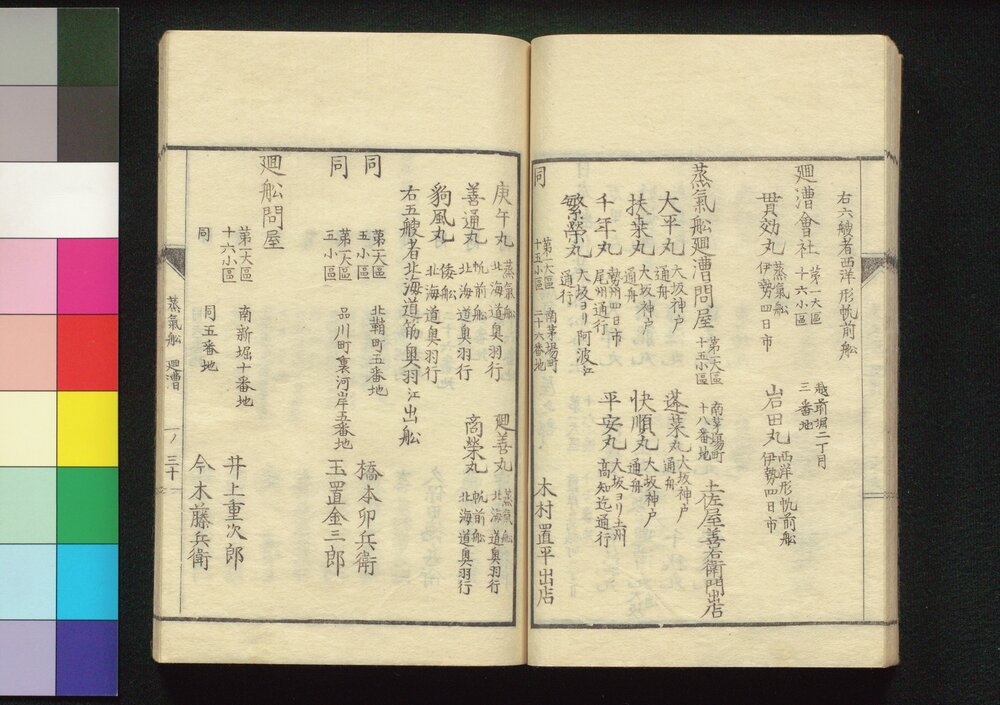 右六艘者西洋形帆前舩
廻漕會社 第一大區十六小區 越前堀二丁目三番地
貫効丸 蒸氣舩伊勢四日市 岩田丸 西洋形帆前舩伊勢四日市
蒸氣舩廻漕問屋 第一大區十五小區 南茅場町十八番地 土佐屋善右衛門出店
大平丸 大坂神戸通舟 蓬莱丸 大坂神戸通舟
扶桒丸 大坂神戸通舟 快順丸 大坂神戸通舟
千年丸 勢州四日市尾州通行 平安丸 大坂ヨリ土州高知迄通行
繁榮丸 大坂ヨリ阿波江通行
同 第一大區十五小區 南茅場町二十六番地 木村置平出店
庚午丸 蒸氣舩北海道奥羽行 廻善丸 蒸氣舩北海道奥羽行
善通丸 帆前舩北海道奥羽行 商榮丸 帆前舩北海道奥羽行
豹風丸 倭舩北海道奥羽行
右五艘者北海道筋奥羽江出舩
同 第一大區五小區 北鞘町五番地 橋本卯兵衛
同 第一大區五小區 品川町裏河岸五番地 玉置金三郎
廻舩問屋
第一大區十六小區 南新堀十番地 井上重次郎
同 同五番地 今木藤兵衛
蒸氣舩 廻漕 一ノ三十